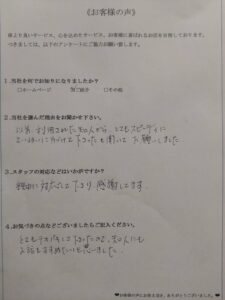 《お客様の声》
様より良いサービス、心を込めたサービス、お客様に喜ばれるお店を目指しております。
つきましては、以下のアンケートにご協力お願い致します。
1.当社を何でお知りになりましたか?
□ホームページ ☑ご紹介 □その他
2.当社を選んだ理由をお聞かせ下さい。
以前利用された知人から、とてもスピーディに
ていねいに片付けて下さったと聞いてお願いしました
3.スタッフの対応などはいかがですか?
親切に対応して下さり感謝してます。
4.お気づきの点などございましたらご記入ください。
とてもテキパキして下さったので、知人にも
お話をすすめたいと思いました。
❤お客様の声にお答え頂き、ありがとうございました。❤